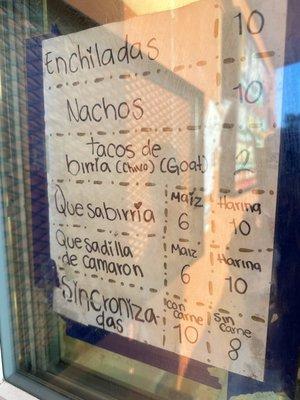 Enchiladas 10
Nachos 10
tacos de
birria (Chivo) (Goat) 2
Quesabirria Maiz 6 Harina 10
Quesadilla
de camaron Maiz 6 Harina 10
Sincroniza-
das con carne 10 Sin carne 8